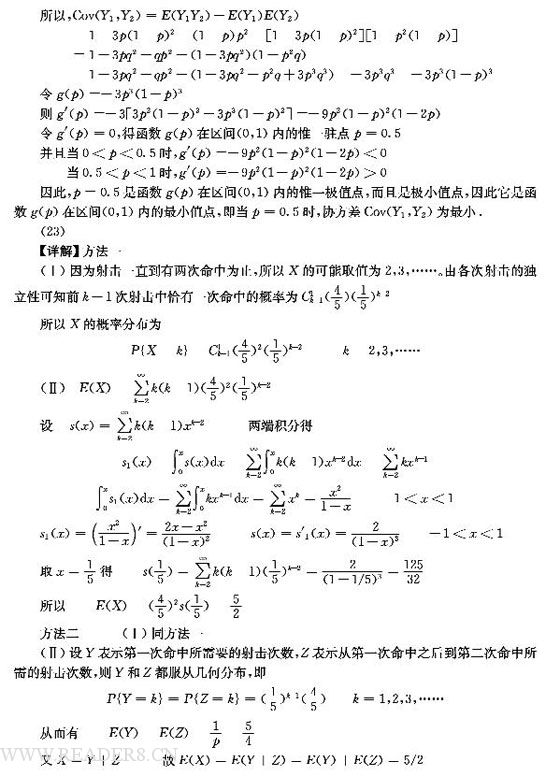 所以,Cov(Y₁,Y₂) = E(Y₁Y₂) − E(Y₁)E(Y₂)
1 3p(1 p)² (1 p)p² [1 3p(1 p)²][1 p²(1 p)]
− 1 − 3pq² − qp² − (1 − 3pq²)(1 − p²q)
1 − 3pq² − qp² − (1 − 3pq² − p²q + 3p³q³) −3p³q³ −3p³(1 − p)³
令 g(p) − −3p³(1 − p)³
则 g′(p) = −3[3p²(1 − p)³ − 3p³(1 − p)²] − −9p²(1 − p)²(1 − 2p)
令 g′(p) = 0,得函数 g(p) 在区间(0,1) 内的惟一驻点 p = 0.5
并且当 0 < p < 0.5 时, g′(p) = −9p²(1 − p)²(1 − 2p) < 0
当 0.5 < p < 1 时, g′(p) = −9p²(1 − p)²(1 − 2p) > 0
因此, p − 0.5 是函数 g(p) 在区间(0,1) 内的惟一极值点,而且是极小值点,因此它是函
数 g(p) 在区间(0,1) 内的最小值点,即当 p = 0.5 时,协方差 Cov(Y₁,Y₂) 为最小.
(23)
【详解】方法一
(Ⅰ) 因为射击一直到有两次命中为止,所以 X 的可能取值为 2,3,……。由各次射击的独
立性可知前 k − 1 次射击中恰有一次命中的概率为 C¹ₖ₋₁(4/5)(1/5)ᵏ⁻²
所以 X 的概率分布为
P{X k} C¹ₖ₋₁(4/5)²(1/5)ᵏ⁻² k 2,3,……
(Ⅱ) E(X) ∑k(k 1)(4/5)²(1/5)ᵏ⁻²
设 s(x) = ∑k(k 1)xᵏ⁻² 两端积分得
s₁(x) ∫₀ˣs(x)dx ∑∫₀ˣk(k 1)xᵏ⁻²dx ∑kxᵏ⁻¹
∫₀ˣs₁(x)dx − ∑∫₀ˣkxᵏ⁻¹dx − ∑xᵏ − x²/(1−x) 1 < x < 1
s₁(x) = (x²/(1−x))′ = (2x−x²)/(1−x)² s(x) = s′₁(x) = 2/(1−x)³ −1 < x < 1
取 x − 1/5 得 s(1/5) − ∑k(k 1)(1/5)ᵏ⁻² − 2/(1−1/5)³ − 125/32
所以 E(X) (4/5)²s(1/5) 5/2
方法二 (Ⅰ) 同方法一
(Ⅱ) 设 Y 表示第一次命中所需要的射击次数, Z 表示从第一次命中之后到第二次命中所
需的射击次数,则 Y 和 Z 都服从几何分布,即
P{Y = k} = P{Z = k} = (1/5)ᵏ⁻¹(4/5) k = 1,2,3,……
从而有 E(Y) E(Z) 1/p 5/4
又 X − Y | Z 故 E(X) − E(Y | Z) − E(Y) | E(Z) − 5/2
WWW.READER8.CN